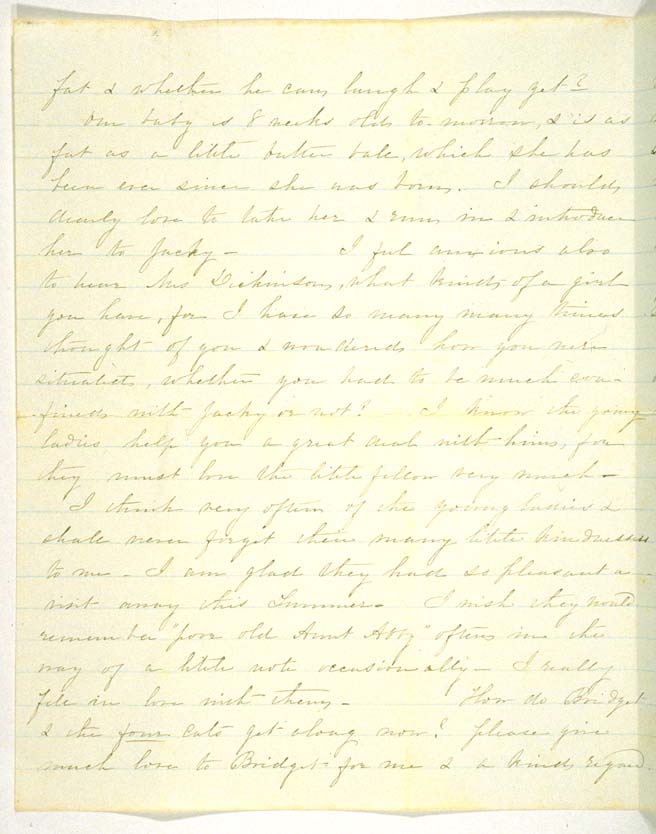 fat & whether he can laugh & play yet?
Our baby is 8 weeks old to-morrow, & is as
fat as a little butter ball, which she has
been ever since she was born. I should
dearly love to take her & run in & introduce
her to Jacky - I feel anxious also
to hear Mrs Dickinson, what kind of a girl
you have, for I have so many many times
thought of you & wondered how you were
situated, whether you had to be much con-
fined with Jacky or not? I know the young
ladies help you a great deal with him, for
they must love the little fellow very much -
I think very often of the young ladies &
shall never forget their many little kindnesses
to me - I am glad they had so pleasant a
visit away this Summer - I wish they would
remember "poor old Aunt Abby" often in the
way of a little note occasionally - I really
fell in love with them - How do Bridget
& the four cats get along now? please give
much love to Bridget for me & a kind regard